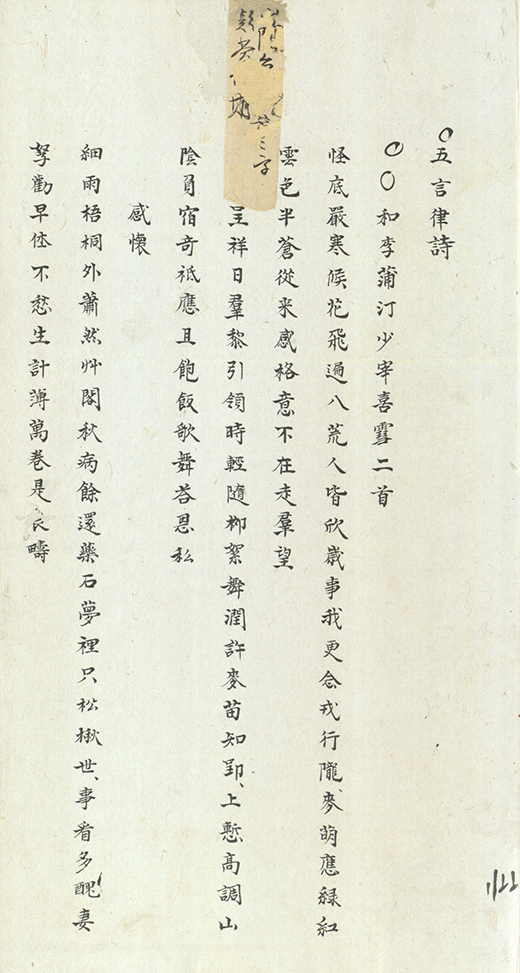 五言律詩
和李蒲汀少宰喜雪二首
怪底嚴寒候花飛遍八荒人皆欣歲事我更念戎行隴麥萌應綠紅
雲色半蒼從来感格意不在走羣望
呈祥日羣黎引領時輕隨柳絮舞潤許麥苗知郢、上慙高調山
陰負宿奇祗應且飽飯歌舞荅恩私
感懷
細雨梧桐外蕭然艸閣秋病餘還藥石夢裡只松楸世、事看多醜妻
孥勸早休不愁生計薄萬卷是 疇